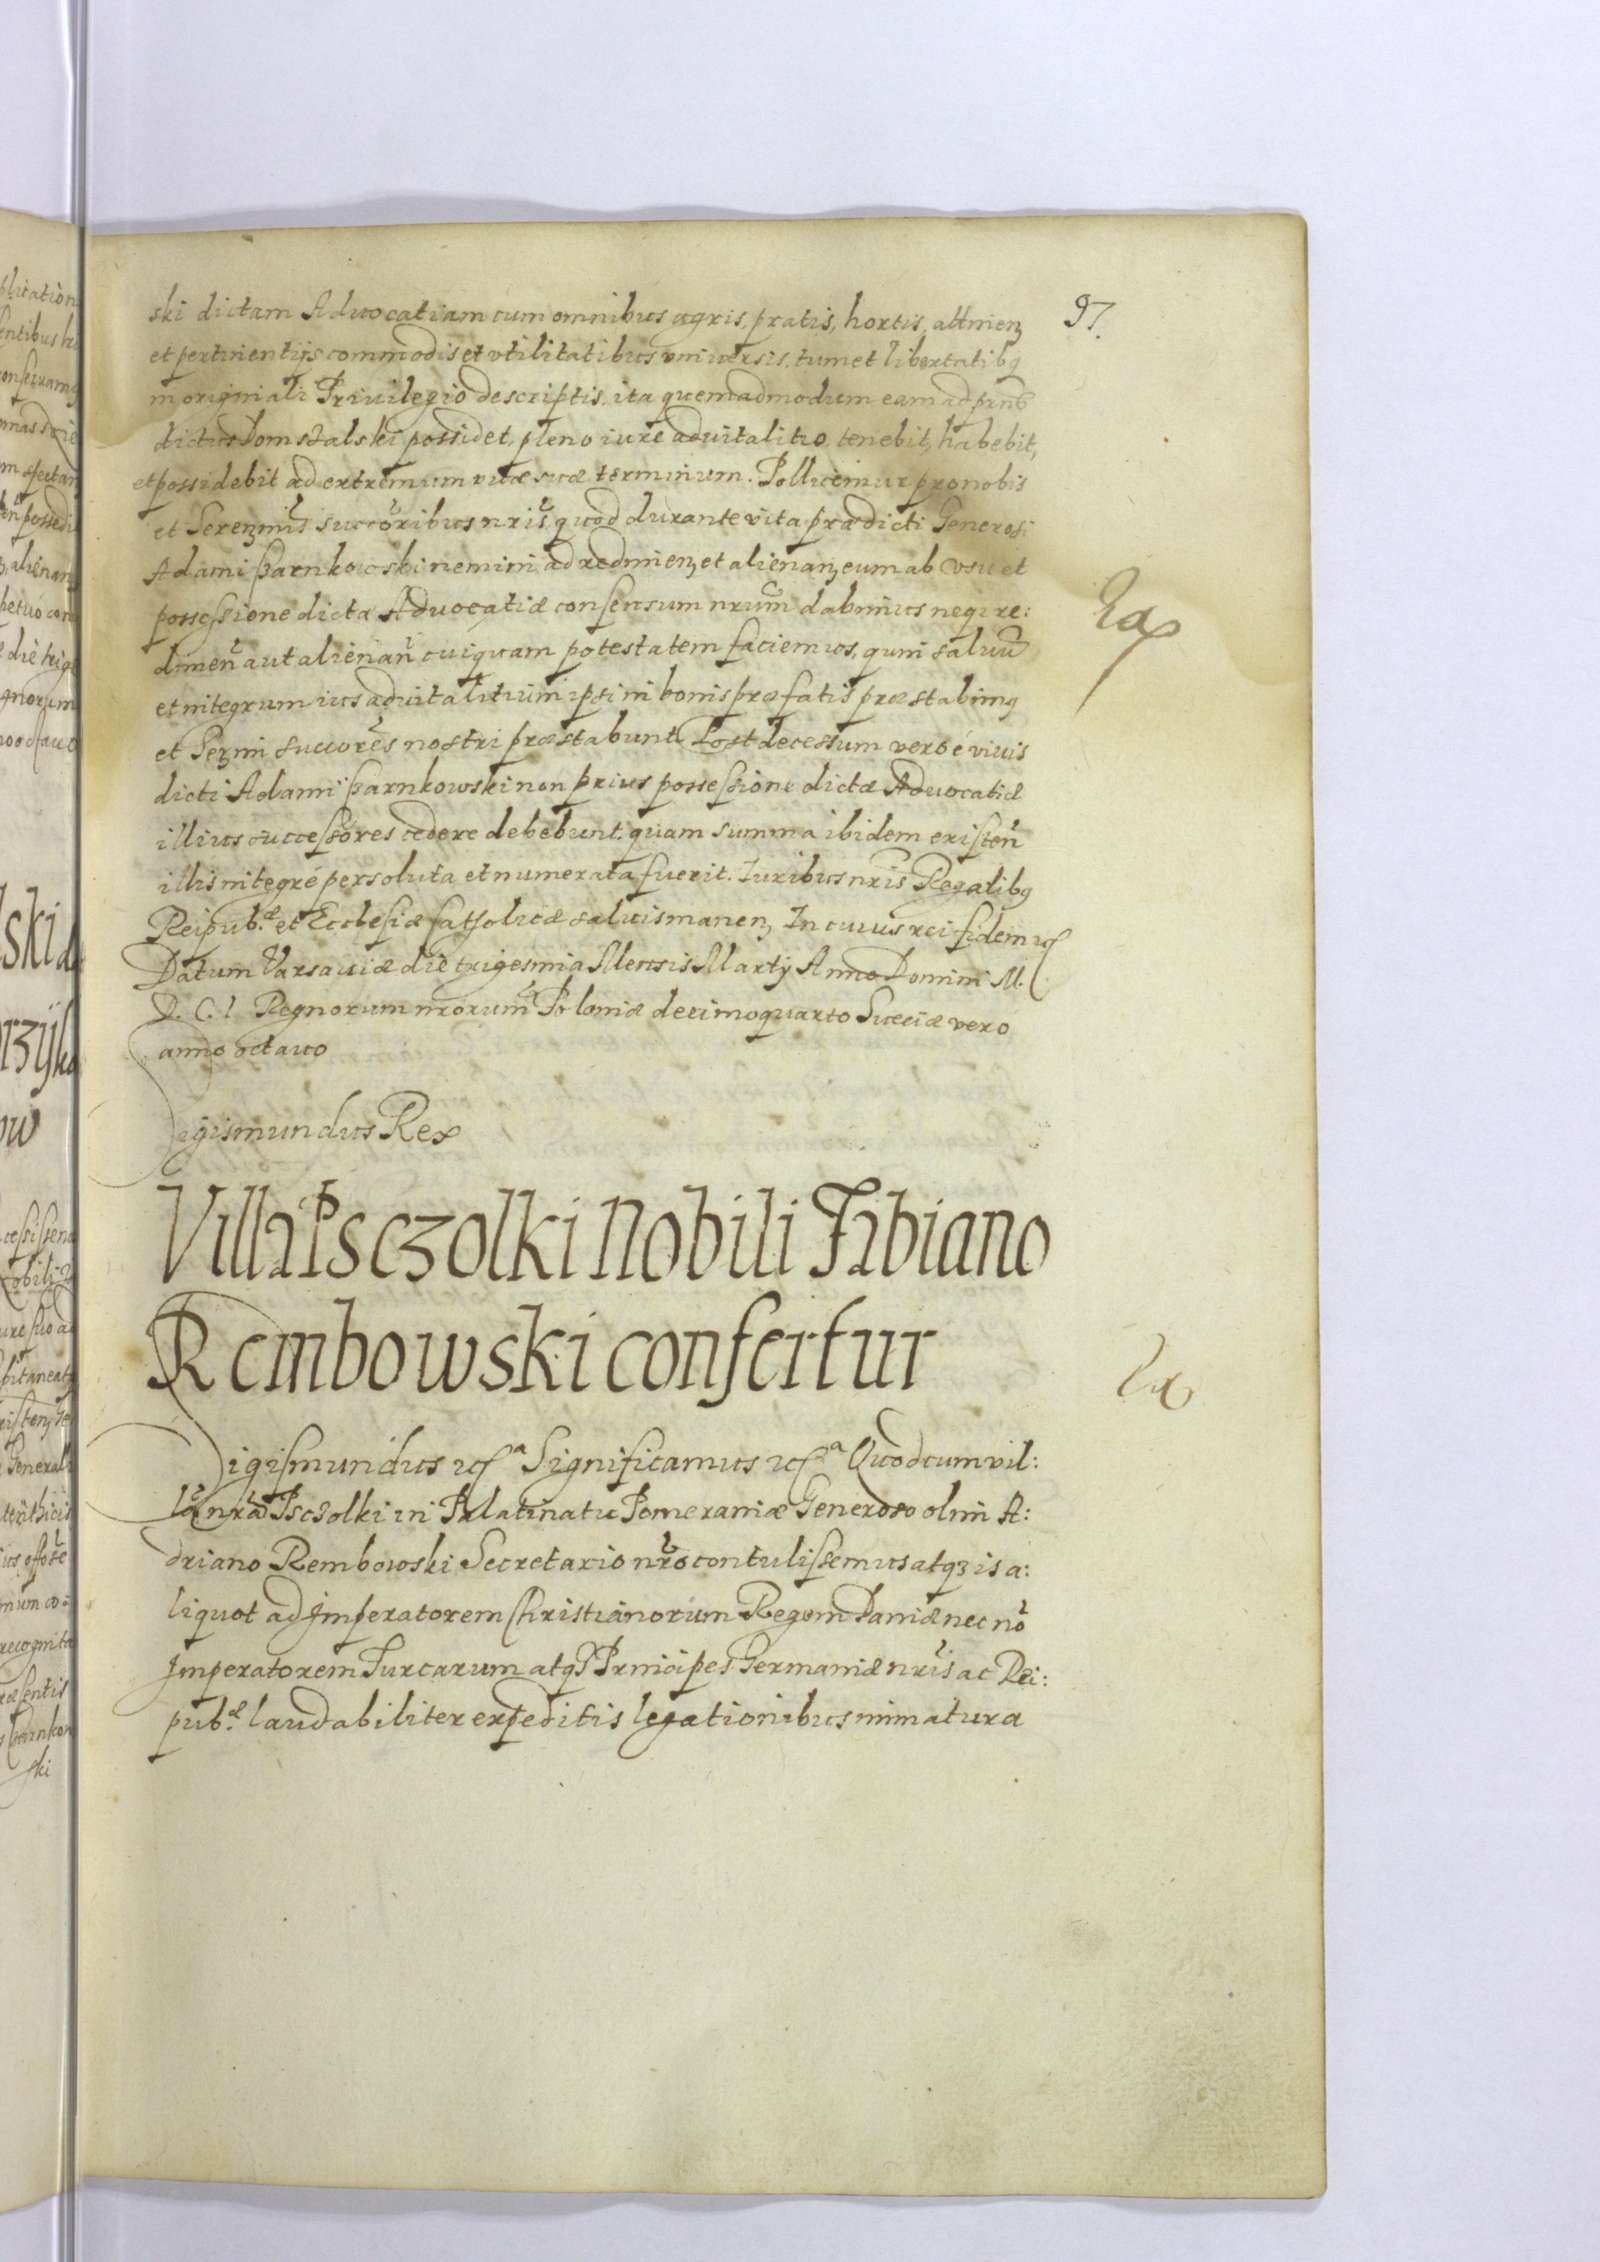 97.
ski dictam Aduocatiam cum omnibus agris, pratis, hortis, attinenȝ
et pertinentijs commodis et vtilitatibus vniuersis, tum et libertatibꝯ
in originali Priuilegio descriptis, ita quemadmodum eam ad prñs
dictus Domszalski possidet, pleno iure aduitalitio tenebit, habebit,
et possidebit ad extremum vitæ suæ terminum. Pollicemur pro nobis
et Serenȝmis succoribus nris quod durante vita prædicti Generosi
Adami Czarnkowski nemini ad redimenȝ et alienanȝ eum ab vsu et
possessione dictæ Aduocatiæ consensum nrum dabimus neqȝ re:
dimen aut alienan cuiquam potestatem faciemus, quin saluũ
et integrum ius aduitalitium ipsi in bonis præfatis præstabimꝯ
et Serȝmi succores nostri præstabunt. Post decessum vero é viuis
dicti Adami Czarnkowski non prius possessione dictæ Aduocatiæ
illius successores cedere debebunt, quam summa ibidem existeñ
illis integré persoluta et numerata fuerit. Iuribus nris Regalibꝯ
Reipub.æ et Ecclesiæ Catholicæ saluis manenȝ In cuius rei fidem ꝛc
Datum Varsauiæ die trigesima Mensis Martij Anno Domini M.
D. C. I Regnorum nrorum Poloniæ decimoquarto Sueciæ vero
anno octauo
Sigismundus Rex
Villa Psczolki Nobili Fabiano
Rembowski confertur
Sigismundus ꝛcª Significamus ꝛcª Quod cum vil:
lã nrã Psczolki in Palatinatu Pomeraniæ Generoso olim A:
driano Rembowski Secretario nro contulissemus atqȝ is a:
liquot ad Imperatorem Christianorum Regem Daniæ nec nõ
Imperatorem Turcarum atqȝ Principes Germaniæ nris ac Rei:
pub.æ laudabiliter expeditis legationibus immatura